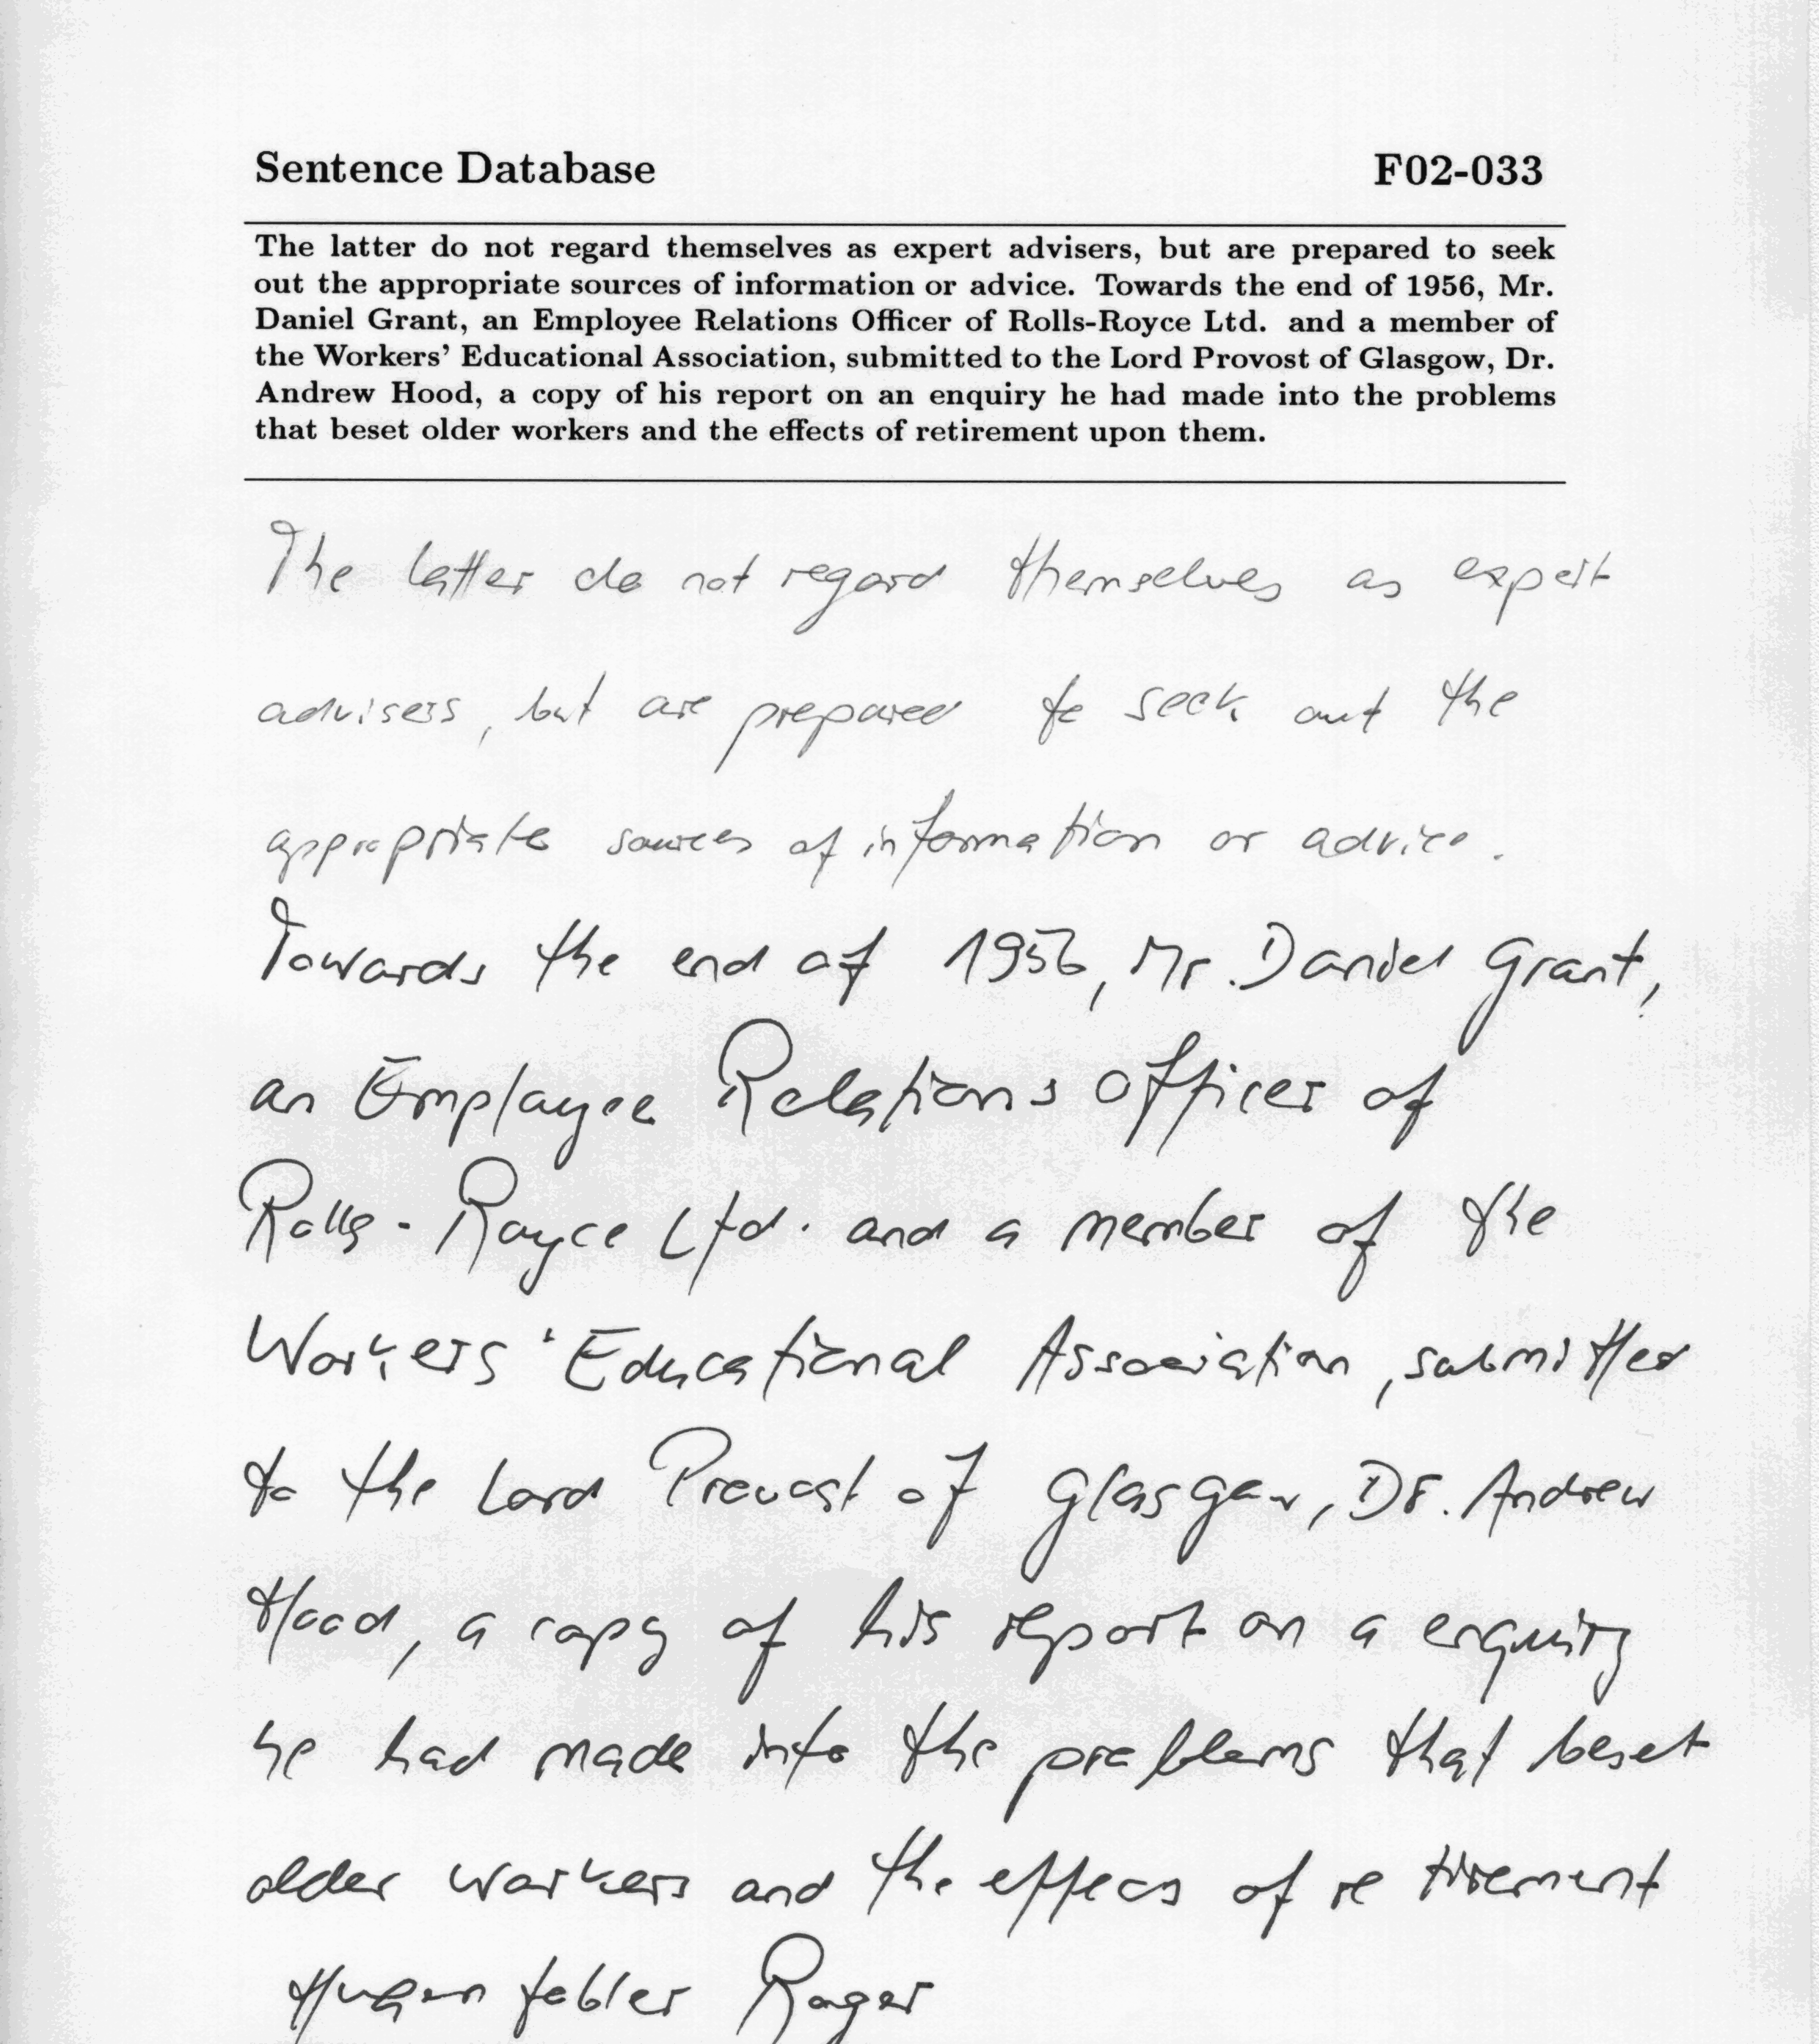 Sentence Database F02-033
The latter do not regard themselves as expert advisers, but are prepared to seek
out the appropriate sources of information or advice. Towards the end of 1956, Mr.
Daniel Grant, an Employee Relations Officer of Rolls-Royce Ltd. and a member of
the Workers' Educational Association, submitted to the Lord Provost of Glasgow, Dr.
Andrew Hood, a copy of his report on an enquiry he had made into the problems
that beset older workers and the effects of retirement upon them.
The latter do not regard themselves as expert
advisers, but are prepared to seek out the
appropriate sources of information or advice.
Towards the end of 1956, Mr. Daniel Grant,
an Employee Relations Officer of
Rolls-Royce Ltd. and a member of the
Workers' Educational Association, submitted
to the Lord Provost of Glasgow, Dr. Andrew
Hood, a copy of his report on a enquiry
he had made into the problems that beset
older workers and the effecs of retirement
Roger